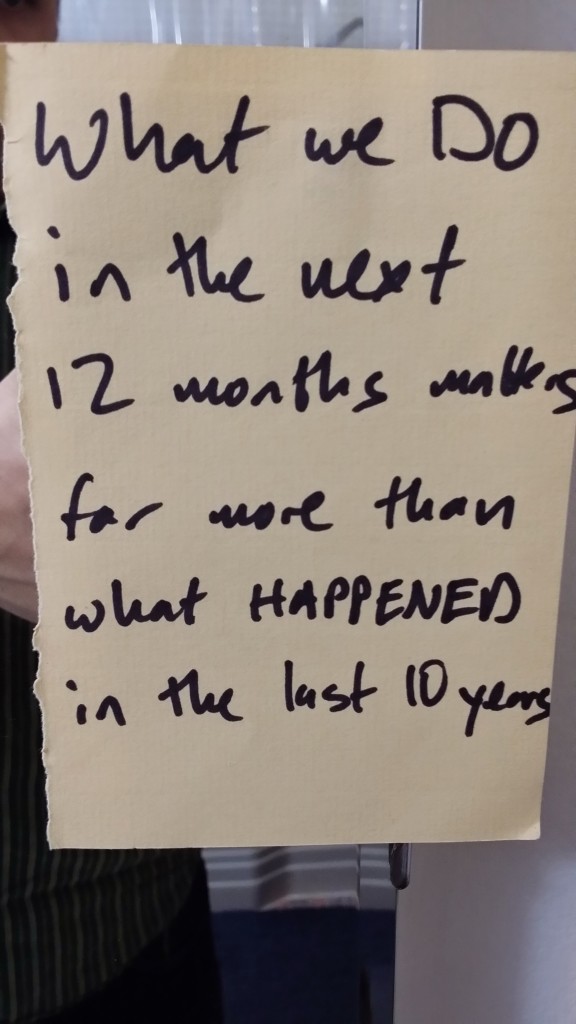 What we DO
in the next
12 months matters
far more than
what HAPPENED
in the last 10 years